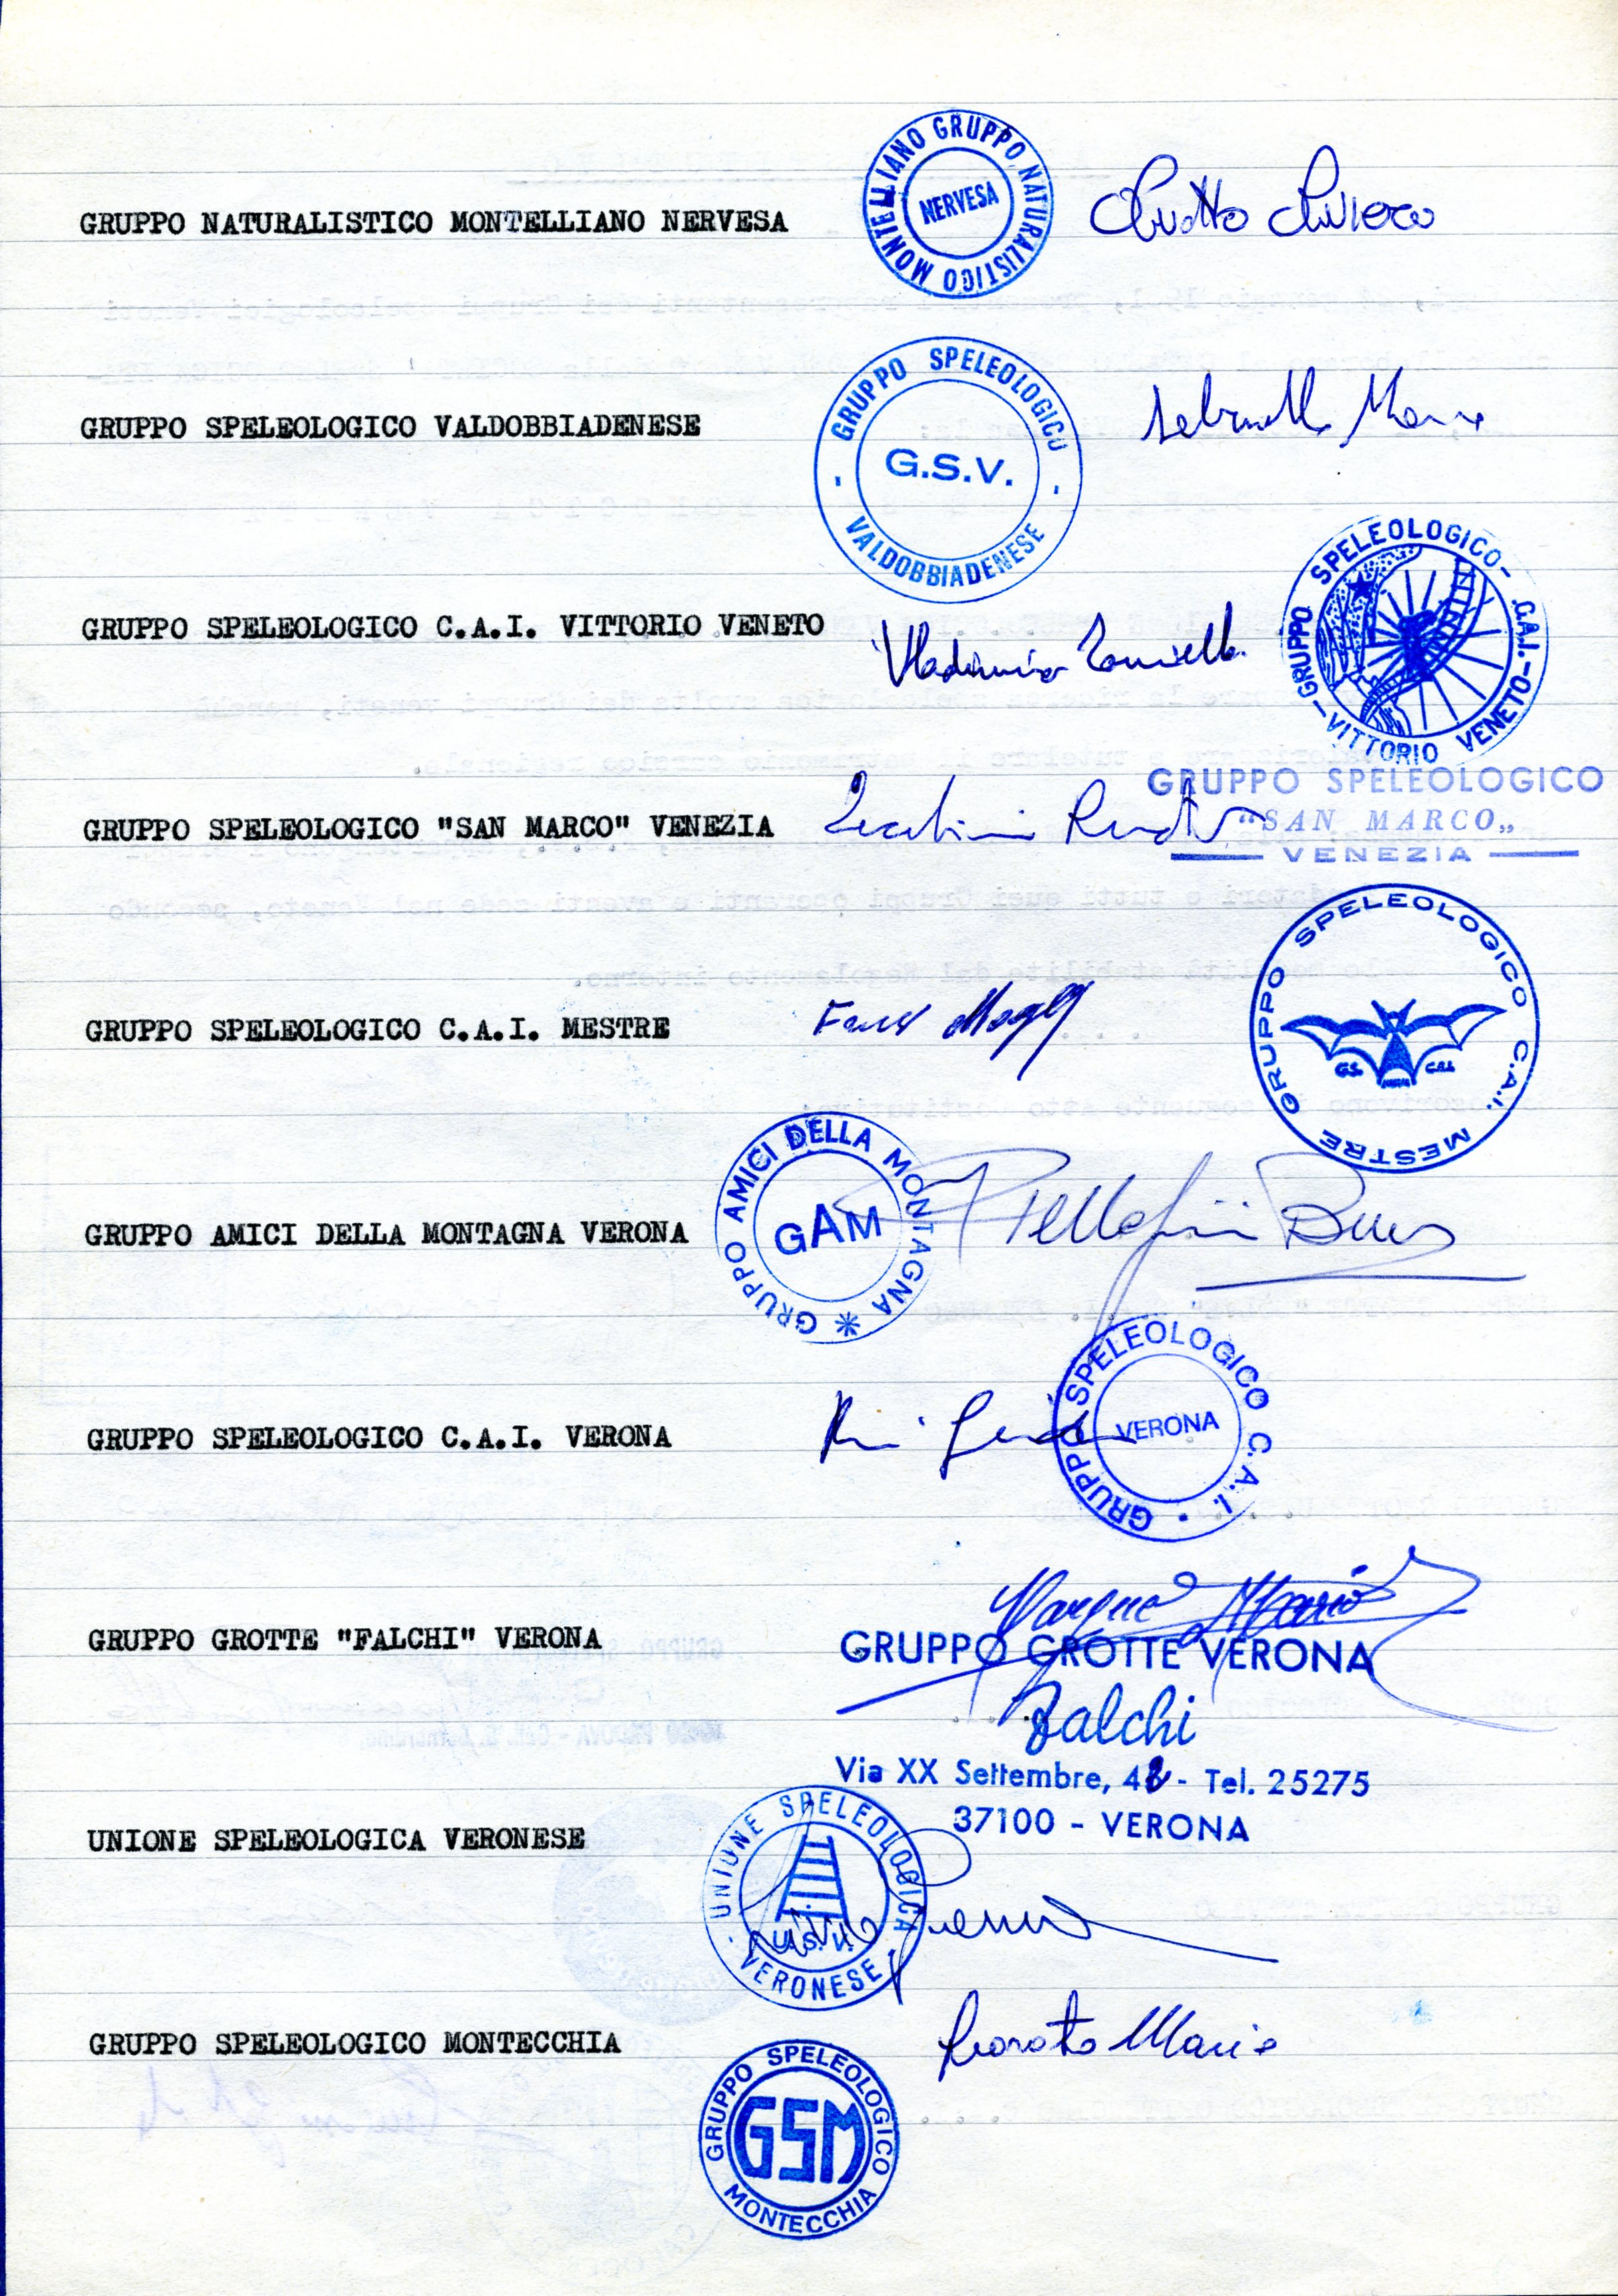 GRUPPO NATURALISTICO MONTELLIANO NERVESA
GRUPPO NATURALISTICO MONTELLIANO
NERVESA
GRUPPO SPELEOLOGICO VALDOBBIADENESE
- GRUPPO SPELEOLOGICO -
G.S.V.
VALDOBBIADENESE
GRUPPO SPELEOLOGICO C.A.I. VITTORIO VENETO
Vladimiro
GRUPPO SPELEOLOGICO - C.A.I. - VITTORIO VENETO -
GRUPPO SPELEOLOGICO "SAN MARCO" VENEZIA
GRUPPO SPELEOLOGICO
"SAN MARCO„
VENEZIA
GRUPPO SPELEOLOGICO C.A.I. MESTRE
GRUPPO SPELEOLOGICO C.A.I. MESTRE
G.S. C.A.I.
GRUPPO AMICI DELLA MONTAGNA VERONA
GRUPPO AMICI DELLA MONTAGNA *
GAM
GRUPPO SPELEOLOGICO C.A.I. VERONA
GRUPPO SPELEOLOGICO C.A.I. •
VERONA
GRUPPO GROTTE "FALCHI" VERONA
Mario
GRUPPO GROTTE VERONA
Falchi
Via XX Settembre, - Tel. 25275
37100 - VERONA
UNIONE SPELEOLOGICA VERONESE
UNIONE SPELEOLOGICA
U.S.V.
- VERONESE
GRUPPO SPELEOLOGICO MONTECCHIA
Mario
GRUPPO SPELEOLOGICO
GSM
MONTECCHIA